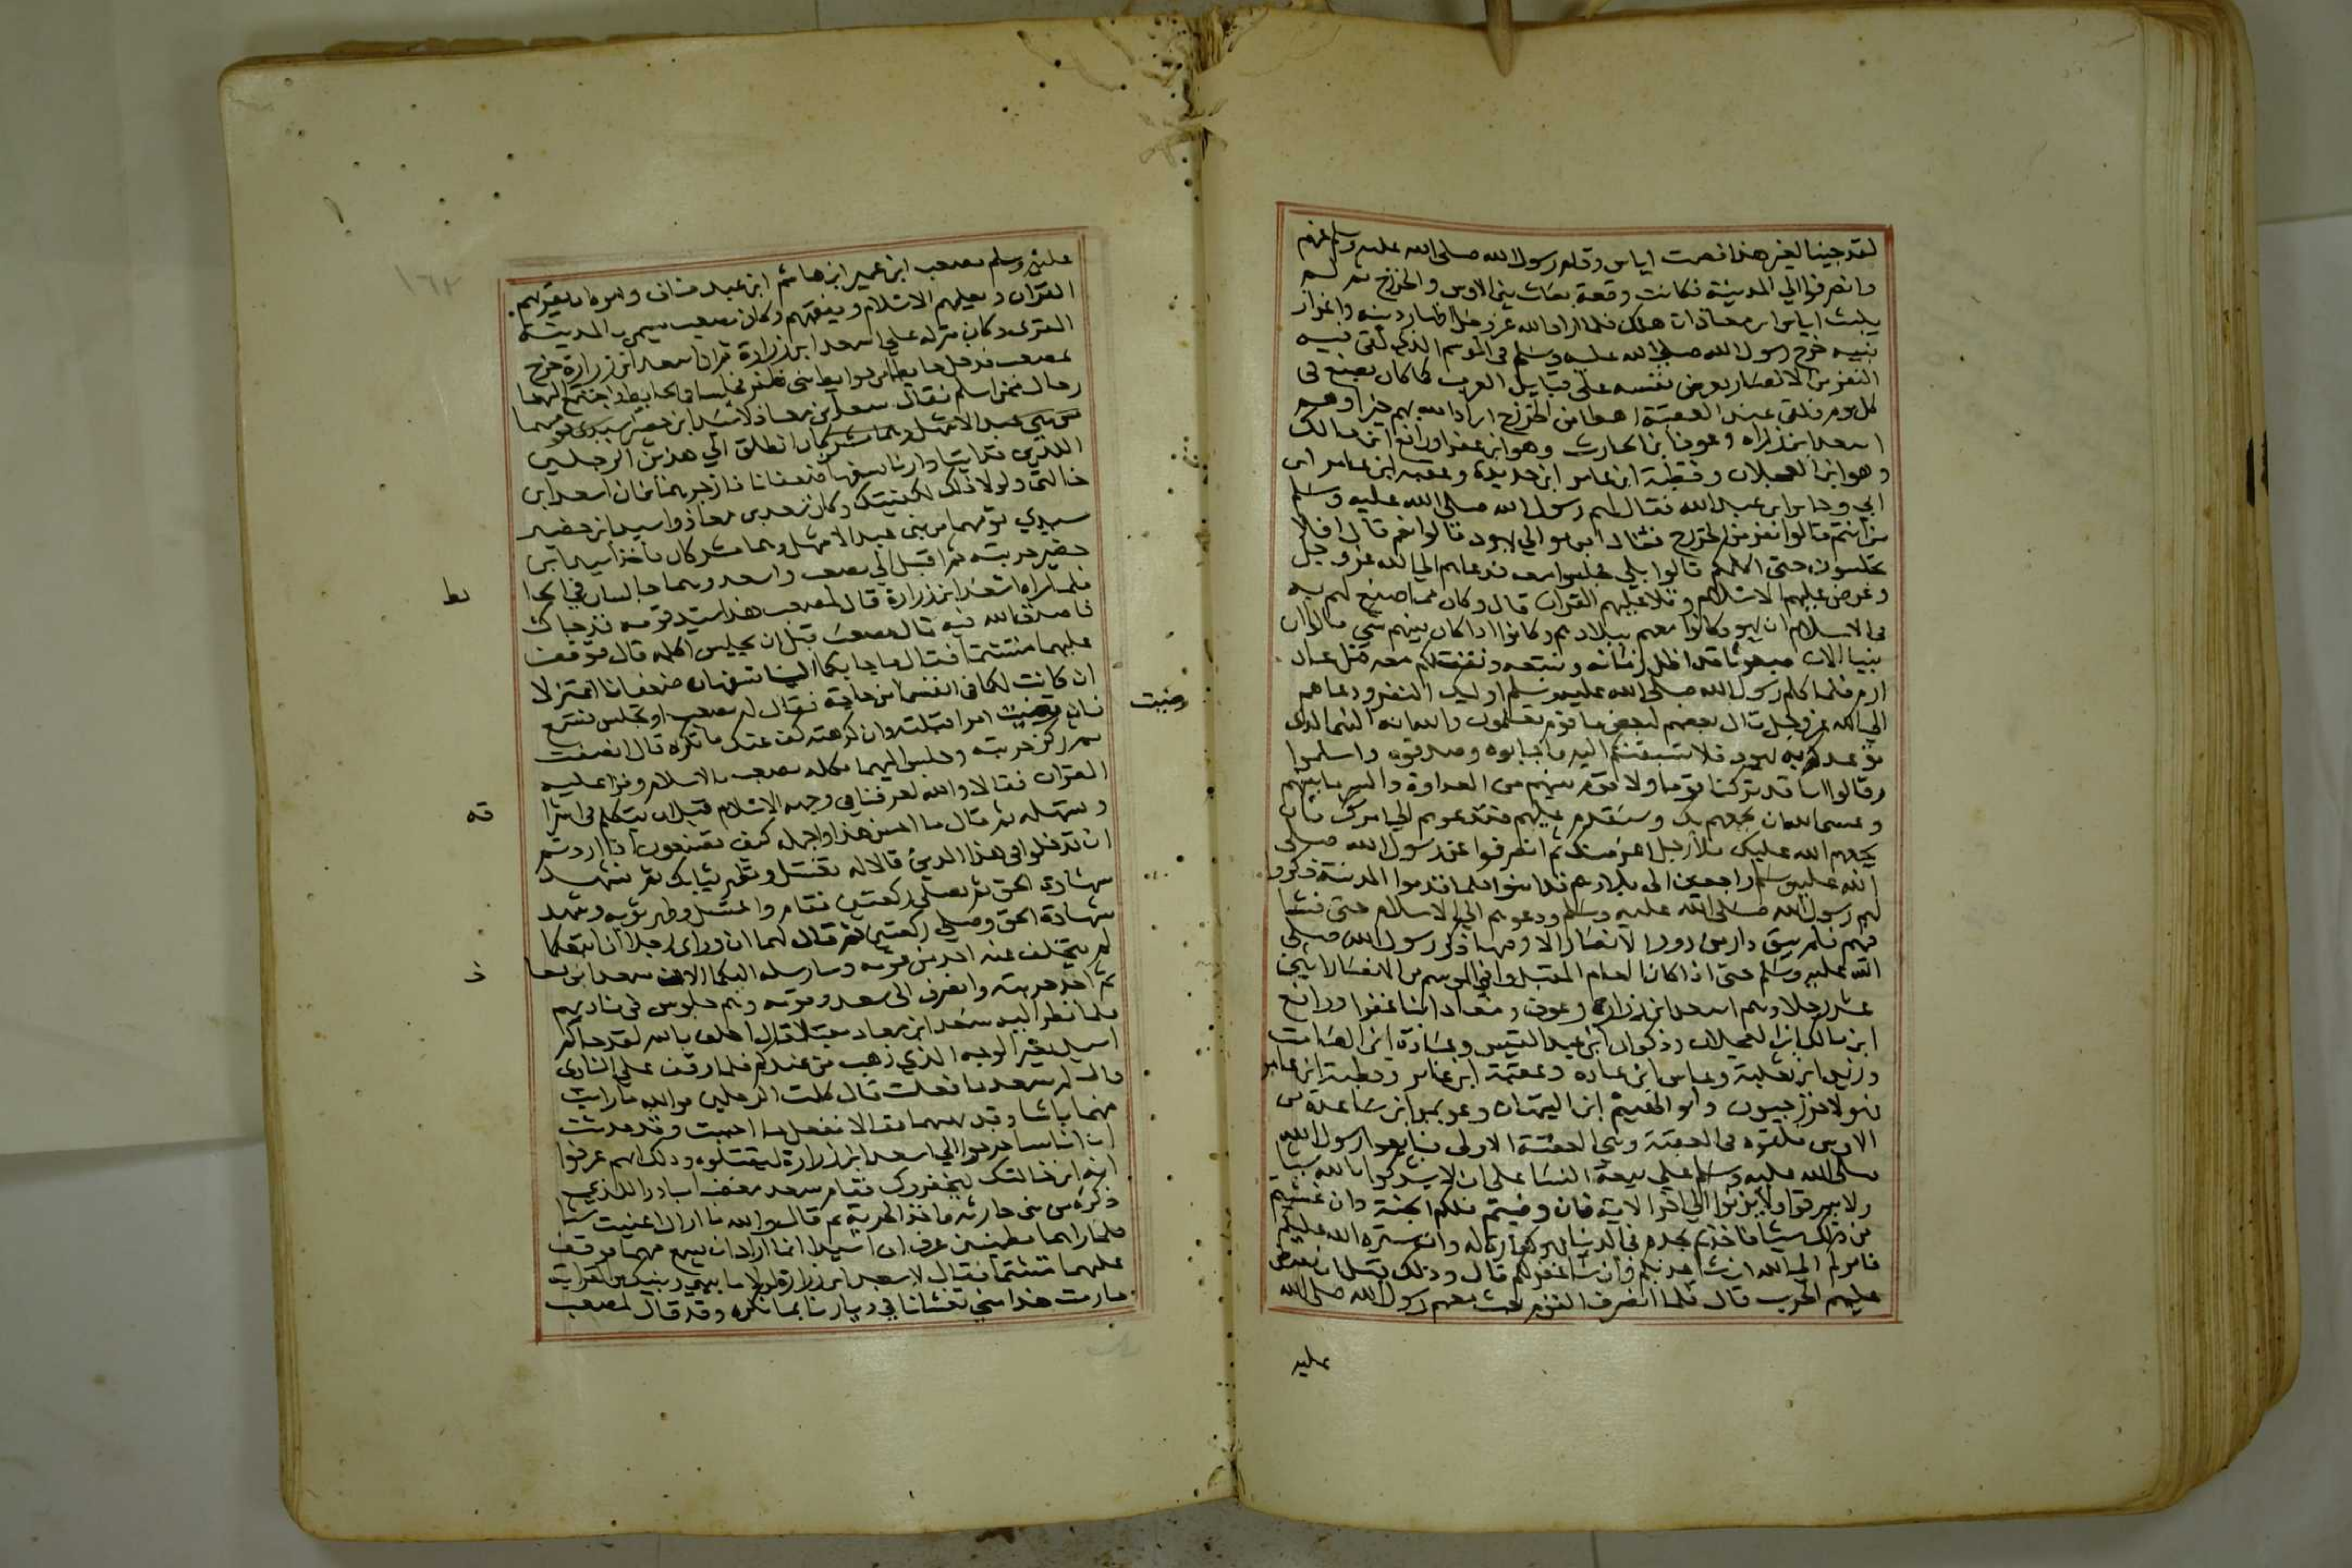 لقد جينا لغير هذا فصمت اياس وقام رسول الله صلى الله عليه وسلم عنهم
وانصرفوا الي المدينة فكانت وقعة بعاث بين الاوس والخزرج ثم لم
يلبث اياس ابن معاذ ان هلك فلما اراد الله عز وجل اظهار دينه واعزاز
نبيه خرج رسول الله صلى الله عليه وسلم في الموسم الذي لقي فيه
النفر من الانصار يعرض نفسه على قبايل العرب كما كان يصنع في
كل موسم فلقي عند العقبة رهطا من الخزرج اراد الله بهم خيرا وهم
اسعد ابن زراره وعوف ابن الحارث وهو ابن عفرا ورافع ابن مالك
وهو ابن العجلان وقطبة ابن عامر ابن حديدة وعقبه ابن عامر ابن
ابي وجابر ابن عبد الله فقال لهم رسول الله صلى الله عليه وسلم
من انتم قالوا نفر من الخزرج فقال امن موالي يهود قالوا نعم قال افلا
تجلسون حتى اكلمكم قالوا بلي فجلسوا معه فدعاهم الي الله عز وجل
وعرض عليهم الاسلام وتلا عليهم القران قال وكان مما صنع لهم به
في الاسلام ان يهود كانوا معهم ببلادهم وكانوا اذا كان بينهم شي قالوا ان
نبيا الان مبعوثا قد اظل زمانه ونتبعه ونقتلكم معه قتل عاد
ارم فلما كلم رسول الله صلى الله عليه وسلم اوليك النفر ودعاهم
الي الله عز وجل قال بعضهم لبعض يا قوم تعلمون والله انه النبي الذي
توعدكم به يهود فلا تسبقنكم اليه فاجابوه وصدقوه واسلموا
وقالوا انا قد تركنا قوما ولا قوم بينهم من العداوة والشر ما بينهم
وعسى الله ان يجمعهم بك وسنقدم عليهم فندعوهم الي امرك فان
يجمعهم الله عليك فلا رجل اعز منك ثم انصرفوا عن رسول الله صلى
الله عليه وسلم راجعين الى بلادهم قد امنوا فلما قدموا المدينة ذكروا
لهم رسول الله صلى الله عليه وسلم ودعوهم الي الاسلام حتى فشا
فيهم فلم يبق دار من دور الانصار الا وفيها ذكر رسول الله صلى
الله عليه وسلم حتى اذا كان العام المقبل وافي الموسم من الانصار اثني
عشر رجلا وهم اسعد ابن زراره وعوف ومعاذ ابنا عفرا ورافع
ابن مالك ابن العجلان وذكوان ابن عبد القيس وعبادة ابن الصامت
وزيد ابن ثعلبة وعباس ابن عباده وعقبة ابن عامر وقطبة ابن عامر
فهولا خزرجيون وابو الهيثم ابن التيهان وعويمر ابن ساعدة من
الاوس فلقوه في العقبة وهي العقبة الاولى فبايعوا رسول الله
صلى الله عليه وسلم على بيعة النسا على ان لا يشركوا بالله شيا
ولا يسرقوا ولا يزنوا الي اخر الاية فان وفيتم فلكم الجنة وان غشيتم
من ذلك شيا فاخذتم بحده في الدنيا فهو كفارة له وان ستره الله عليكم
فامركم الي الله ان شا عذبكم وان شا غفر لكم قال وذلك قبل ان يفرض
عليهم الحرب قال فلما انصرف القوم بعث معهم رسول الله صلى الله
عليه
١٦٢
عليه وسلم مصعب ابن عمير ابن هاشم ابن عبد مناف وامره ان يقريهم
القران ويعلمهم الاسلام ويفقههم وكان مصعب يسمى بالمدينة
المقري وكان منزله على اسعد ابن زرارة ثم ان اسعد ابن زرارة خرج
بمصعب فدخل حايطا من حوايط بني ظفر فجلسا في الحايط واجتمع اليهما
رجال ممن اسلم فقال سعد ابن معاذ لاسيد ابن حضير سيدي قومهما
من بني عبد الاشهل وهما مشركان انطلق الي هذين الرجلين
اللذين قد اتيا دارنا ليسفها ضعفانا فازجرهما فان اسعد ابن
خالتي ولولا ذلك لكفيتك وكان سعد بن معاذ واسيد ابن حضير
سيدي قومهما من بني عبد الاشهل وهما مشركان فاخذ اسيد ابن
حضير حربته ثم اقبل الي مصعب واسعد وهما جالسان في الحا
يط
فلما راه اسعد ابن زرارة قال لمصعب هذا سيد قومه قد جاك
فاصدق الله فيه قال مصعب قبل ان يجلس اكلمه قال فوقف
عليهما متشتما فقال ما جا بكما الينا تسفهان ضعفانا اعتزلا
ان كانت لكما في انفسكما من حاجة فقال له مصعب او تجلس فتسمع
فان رضيت امرا قبلته وان كرهته كف عنك ما تكره قال انصفت
رضيت
ثم ركز حربته وجلس اليهما فكلمه مصعب بالاسلام وقرا عليه
القران فقالا والله لعرفنا في وجهه الاسلام قبل ان يتكلم في اشرا
قه
وتسهله ثم قال ما احسن هذا واجمله كيف تصنعون اذا اردتم
ان تدخلوا في هذا الدين قالا له تغتسل وتطهر ثيابك ثم تشهد
شهادة الحق ثم تصلي ركعتين فقام واغتسل وطهر ثوبه وشهد
شهادة الحق وصلي ركعتين ثم قال لهما ان وراي رجلا ان اتبعكما
لم يتخلف عنه احد من قومه وسارسله اليكما الان سعد ابن معا
ذ
ثم اخذ حربته وانصرف الى سعد وقومه وهم جلوس في ناديهم
فلما نظر اليه سعد ابن معاذ مقبلا قال احلف بالله لقد جاكم
اسيد بغير الوجه الذي ذهب من عندكم فلما وقف على النادي
قال له سعد ما فعلت قال كلمت الرجلين فوالله ما رايت
منهما باسا وقد نهيتهما فقالا نفعل ما احببت وقد حدثت
ان اناسا خرجوا الي اسعد ابن زرارة ليقتلوه وذلك انهم عرفوا
انه ابن خالتك ليخفروك فقام سعد مغضبا مبادرا للذي
ذكره من بني حارثه فاخذ الحربة ثم قال والله ما اراك اغنيت شيا
فلما راهما مطمئنين عرف ان اسيدا انما اراد ان يسمع منهما فوقف
عليهما متشتما فقال لاسعد ابن زرارة لولا ما بيني وبينك من القرابة
ما رمت هذا مني تغشانا في ديارنا بما نكره وقد قال لمصعب